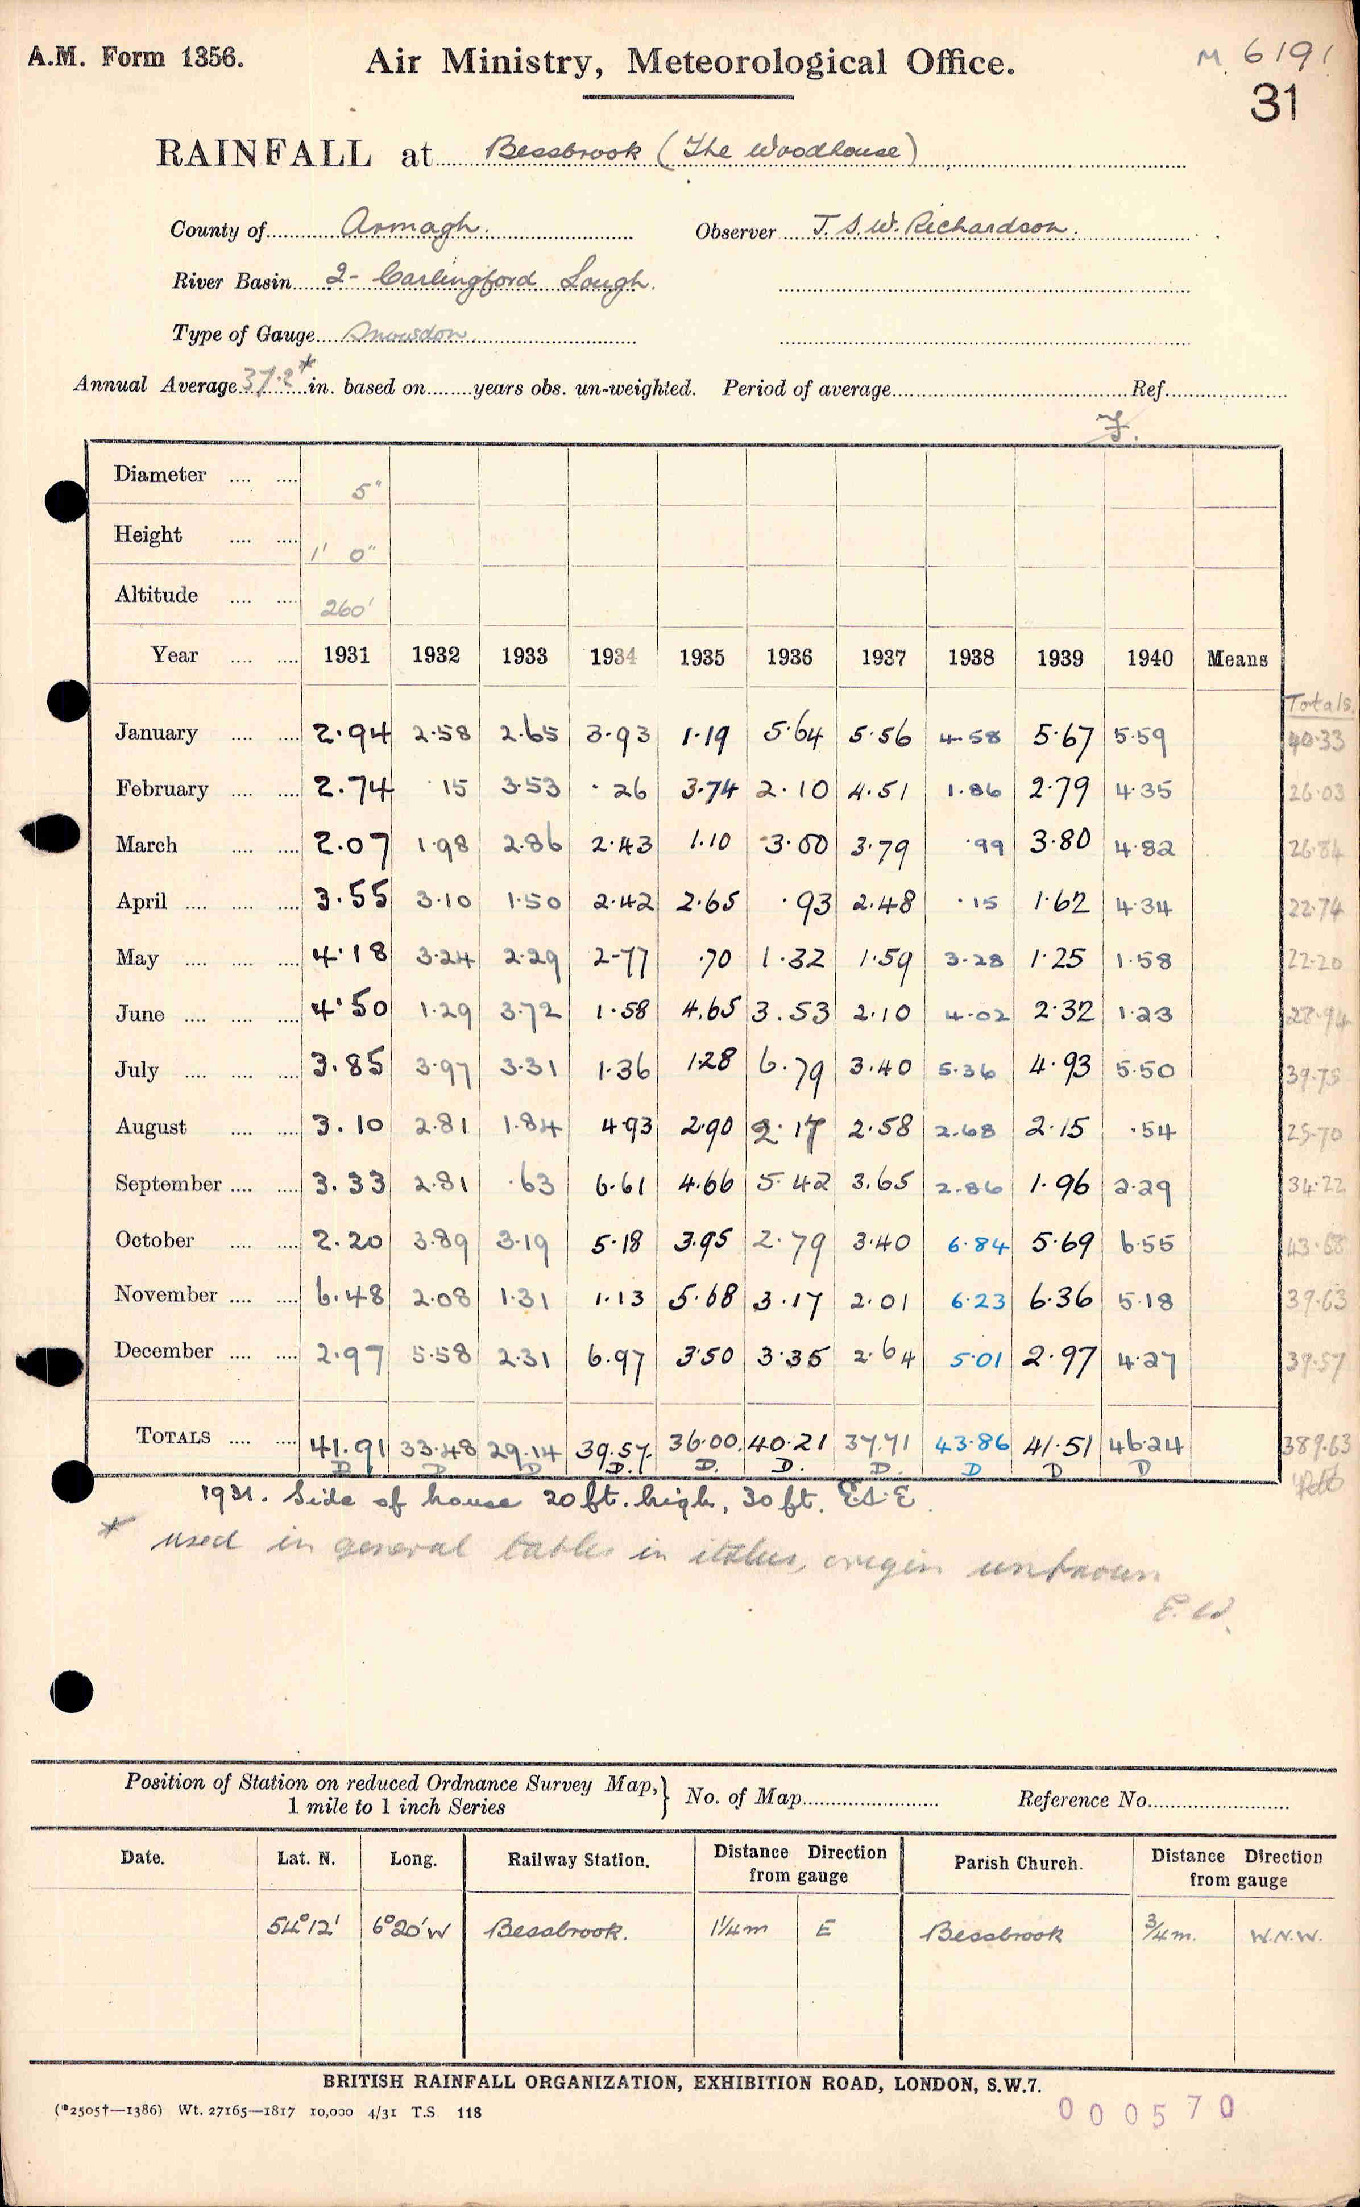 A.M. Form 1356.
Air Ministry, Meteorological Office.
M 6191
31
RAINFALL at Bessbrook (The Woodhouse)
County of Armagh. Observer T. S. W. Richardson.
River Basin 2- Carlingford Lough.
Type of Gauge Snowdon
Annual Average 37.2* in. based on ........ years obs. un-weighted. Period of average ........ Ref.
Diameter 5"
Height 1' 0"
Altitude 260'
Year 1931 1932 1933 1934 1935 1936 1937 1938 1939 1940 Means
Totals.
January 2.94 2.58 2.65 3.93 1.19 5.64 5.56 4.58 5.67 5.59 40.33
February 2.74 .15 3.53 .26 3.74 2.10 4.51 1.86 2.79 4.35 26.03
March 2.07 1.98 2.86 2.43 1.10 3.00 3.79 .99 3.80 4.82 26.84
April 3.55 3.10 1.50 2.42 2.65 .93 2.48 .15 1.62 4.34 22.74
May 4.18 3.24 2.29 2.77 .70 1.32 1.59 3.28 1.25 1.58 22.20
June 4.50 1.29 3.72 1.58 4.65 3.53 2.10 4.02 2.32 1.23 28.94
July 3.85 3.97 3.31 1.36 1.28 6.79 3.40 5.36 4.93 5.50 39.75
August 3.10 2.81 1.84 4.93 2.90 2.17 2.58 2.68 2.15 .54 25.70
September 3.33 2.81 .63 6.61 4.66 5.42 3.65 2.86 1.96 2.29 34.22
October 2.20 3.89 3.19 5.18 3.95 2.79 3.40 6.84 5.69 6.55 43.68
November 6.48 2.08 1.31 1.13 5.68 3.17 2.01 6.23 6.36 5.18 39.63
December 2.97 5.58 2.31 6.97 3.50 3.35 2.64 5.01 2.97 4.27 39.57
TOTALS 41.91 33.48 29.14 39.57 36.00 40.21 37.71 43.86 41.51 46.24 389.63
D D D D. D. D. D. D D D
1931. Side of house 20 ft. high, 30 ft. ESE
* used in general tables in italics, origin unknown
E.W.
Position of Station on reduced Ordnance Survey Map, 1 mile to 1 inch Series } No. of Map ........ Reference No.
Date. Lat. N. Long. Railway Station. Distance Direction from gauge Parish Church. Distance Direction from gauge
54°12' 6°20'W Bessbrook. 1¼m E Bessbrook ¾m. W.N.W.
BRITISH RAINFALL ORGANIZATION, EXHIBITION ROAD, LONDON, S.W.7.
(*2505†—1386) Wt. 27165—1817 10,000 4/31 T.S 118
000570